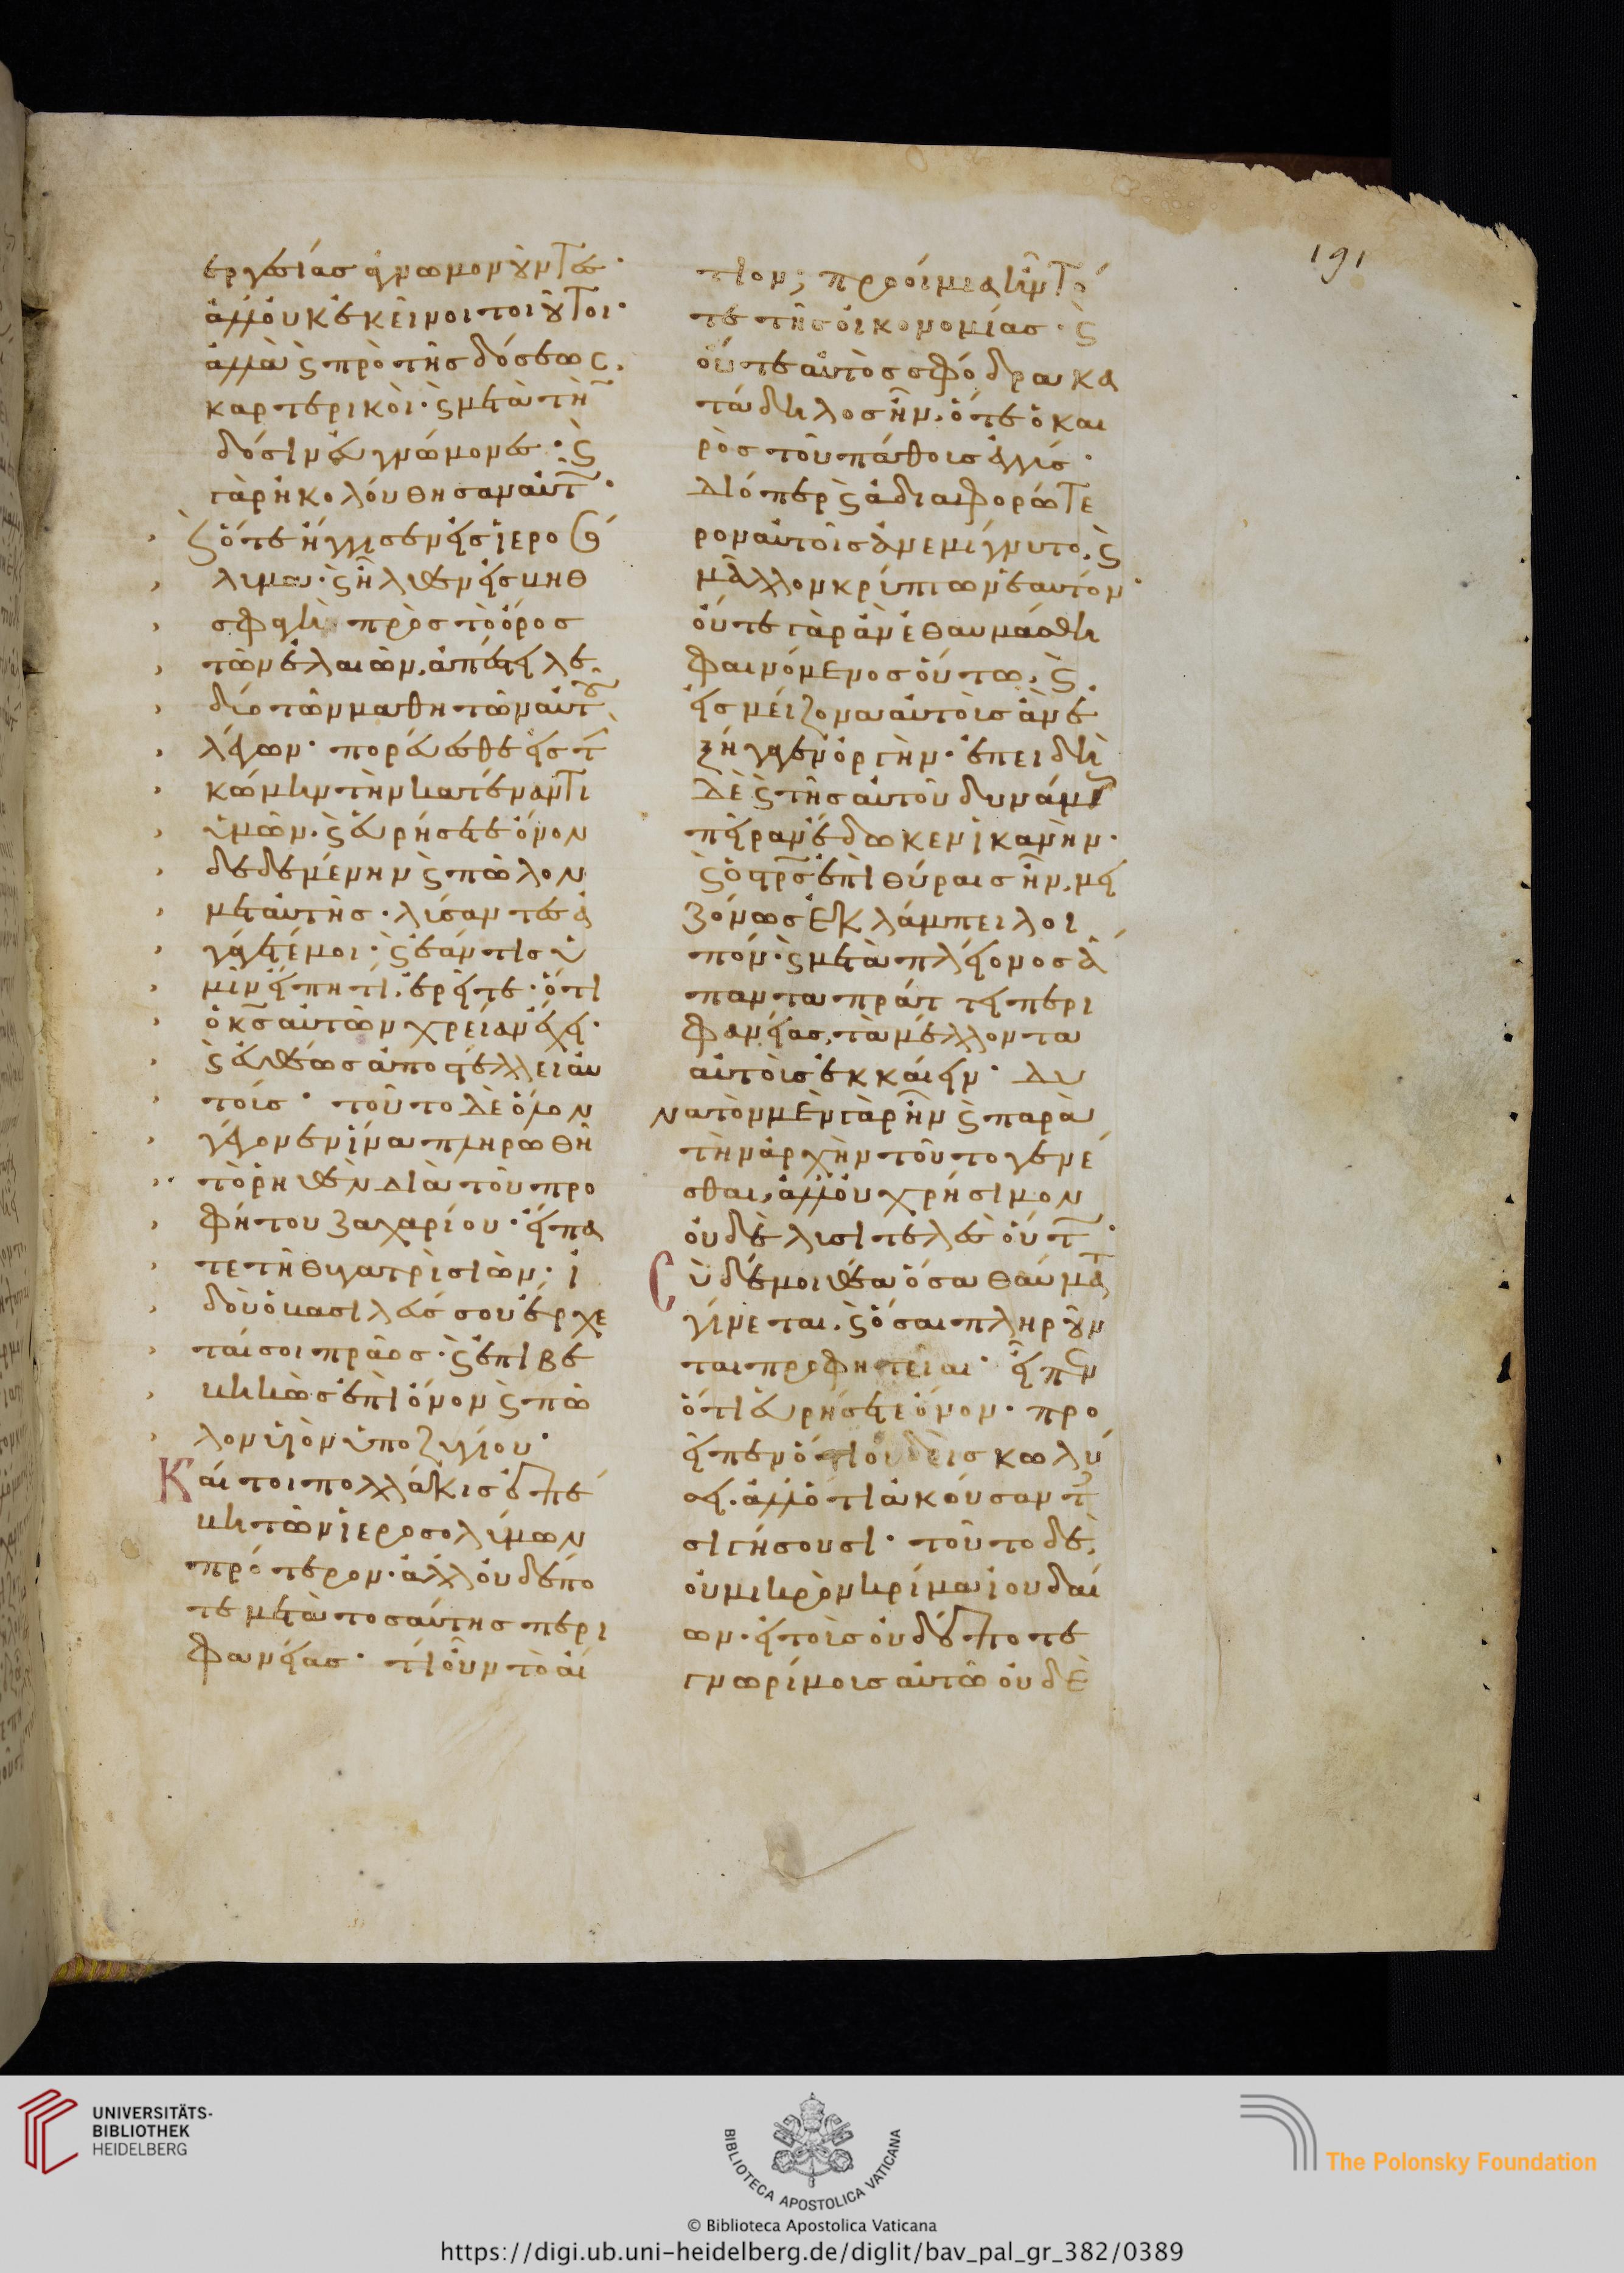 εργεσίας ἀγνωμονοῦντες·
ἀλλ' οὐκ ἐκεῖνοι τοιοῦτοι·
ἀλλὰ ϗ πρὸ τῆς δόσεως.
καρτερικοὶ· ϗ μετὰ τὴν
δόσιν εὐγνώμονες· ϗ
γὰρ ἠκολούθησαν αὐτῷ·
ϗ ὅτε ἤγγισεν εἰς ἱεροσό
λυμα· ϗ ἦλθεν εἰς βηθ
σφαγὴ πρὸς τὸ ὄρος
τῶν ἐλαιῶν, ἀπέστειλε
δύο τῶν μαθητῶν αὐτοῦ
λέγων· πορεύεσθε εἰς τὴν
κώμην τὴν κατέναντι
ὑμῶν· ϗ εὑρήσετε ὄνον
δεδεμένην ϗ πῶλον
μετ' αὐτῆς· λύσαντες ἀ
γάγετέ μοι· ϗ ἐάν τις ὑ
μῖν εἴπη τί, ἐρεῖτε· ὅτι
ὁ κς αὐτῶν χρείαν ἔχει·
ϗ εὐθέως ἀποστέλλει αὐ
τούς· τοῦτο δὲ ὅλον
γέγονεν ἵνα πληρωθῆ
τὸ ῥηθὲν διὰ τοῦ προ
φήτου ζαχαρίου· εἴπα
τε τῆ θυγατρὶ σιὼν· ἰ
δοὺ ὁ βασιλεύς σου ἔρχε
ταί σοι πρᾶος· ϗ ἐπιβε
βηκὼς ἐπὶ ὄνον ϗ πῶ
λον υἱὸν ὑποζυγίου·
Καίτοι πολλάκις ἐπέ
βη τῶν ἱεροσολύμων
πρότερον· ἀλλ' οὐδέπο
τε μετὰ τοσαύτης περι
φανείας· τί οὖν τὸ αἴ
τιον; προοίμια ἦν τό
τε τῆς οἰκονομίας· ϗ
οὔτε αὐτὸς σφόδρα κα
τάδηλος ἦν, ὅτε ὁ και
ρὸς τοῦ πάθους ἐγγύς·
διόπερ ϗ ἀδιαφορώτε
ρον αὐτοῖς ἀνεμίγνυτο, ϗ
μᾶλλον κρύπτων ἑαυτόν·
οὔτε γὰρ ἂν ἐθαυμάσθη
φαινόμενος οὕτω, ϗ
εἰς μείζονα αὐτοὺς ἂν ἐ
ξήγαγεν ὀργήν· ἐπειδὴ
δὲ ϗ τῆς αὐτοῦ δυνάμεως
πεῖραν ἔδωκεν ἱκανὴν·
ϗ ὁ στρς ἐπὶ θύραις ἦν, μει
ζόνως ἐκλάμπει λοι
πόν· ϗ μετὰ πλείονος ἅ
παντα πράττει περι
φανείας, τὰ μέλλοντα
αὐτοὺς ἐκκαίειν· δυ
νατὸν μὲν γὰρ ἦν ϗ παρὰ
τὴν ἀρχὴν τοῦτο γενέ
σθαι, ἀλλ' οὐ χρήσιμον
οὐδὲ λυσιτελὲς οὕτω·
Σὺ δέ μοι θέα ὅσα θαύματα
γίνεται, ϗ ὅσαι πληροῦν
ται προφητεῖαι· εἶπεν
ὅτι εὑρήσετε ὄνον· προ
εῖπεν ὅτι οὐδεὶς κωλύ
σει. ἀλλ' ὅτι ἀκούσαντες
σιγήσουσι· τοῦτο δὲ,
οὐ μικρὸν κρίμα ἰουδαί
ων· εἰ τοὺς οὐδέποτε
γνωρίμους αὐτῶ οὐδὲ
191
UNIVERSITÄTS-
BIBLIOTHEK
HEIDELBERG
BIBLIOTECA APOSTOLICA VATICANA
© Biblioteca Apostolica Vaticana
The Polonsky Foundation
https://digi.ub.uni-heidelberg.de/diglit/bav_pal_gr_382/0389